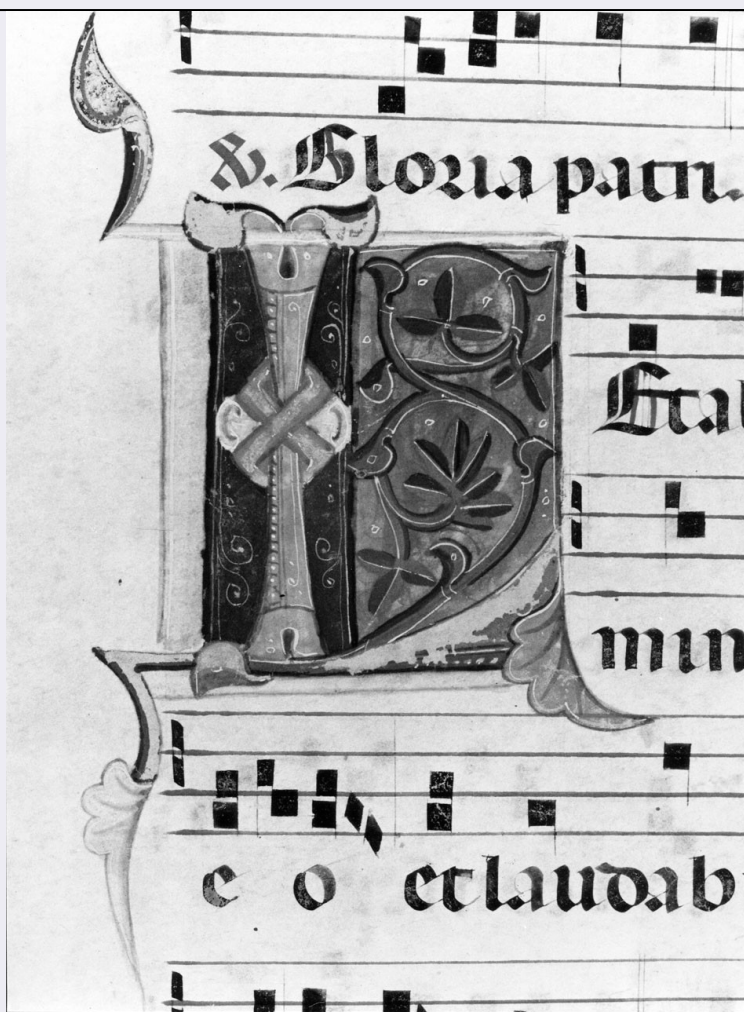 ℣. Gloria patri.
L Etab
min
e o et laudab